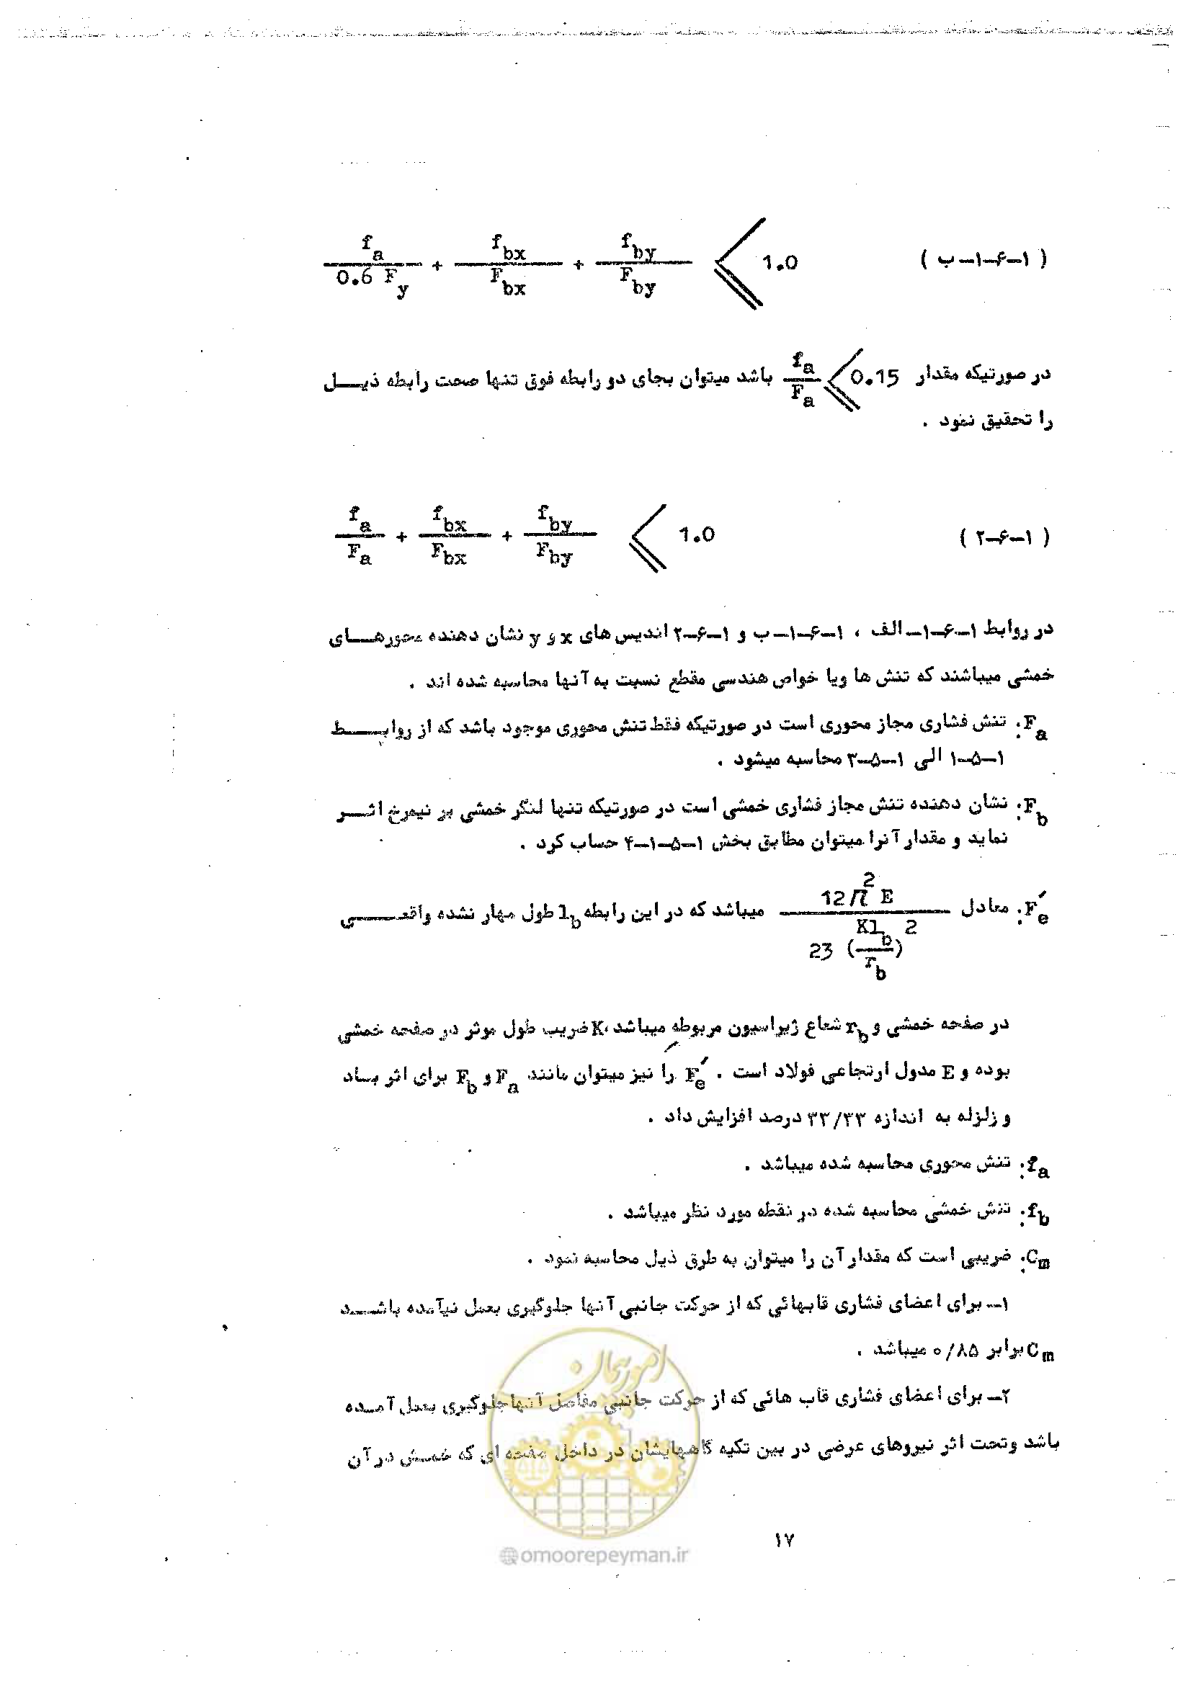 f_a / 0.6 F_y + f_bx / F_bx + f_by / F_by ≤ 1.0 (۱-۶-۱- ب)
در صورتیکه مقدار f_a / F_a ≤ 0.15 باشد میتوان بجای دو رابطه فوق تنها صحت رابطه ذیـــل
را تحقیق نمود .
f_a / F_a + f_bx / F_bx + f_by / F_by ≤ 1.0 (۱-۶-۲)
در روابط ۱-۶-۱- الف ، ۱-۶-۱- ب و ۱-۶-۲ اندیس های x و y نشان دهنده محورهـــای
خمشی میباشند که تنش ها ویا خواص هندسی مقطع نسبت به آنها محاسبه شده اند .
F_a: تنش فشاری مجاز محوری است در صورتیکه فقط تنش محوری موجود باشد که از روابـــط
۱-۵-۱ الی ۱-۵-۳ محاسبه میشود .
F_b: نشان دهنده تنش مجاز فشاری خمشی است در صورتیکه تنها لنگر خمشی بر نیمرخ اثـــر
نماید و مقدار آنرا میتوان مطابق بخش ۱-۵-۱-۴ حساب کرد .
F′_e: معادل 12 π² E / 23 (Kl_b / r_b)² میباشد که در این رابطه l_b طول مهار نشده واقعـــی
در صفحه خمشی و r_b شعاع ژیراسیون مربوطه میباشد، K ضریب طول موثر در صفحه خمشی
بوده و E مدول ارتجاعی فولاد است . F′_e را نیز میتوان مانند F_a و F_b برای اثر بـاد
و زلزله به اندازه ۳۳/۳۳ درصد افزایش داد .
f_a: تنش محوری محاسبه شده میباشد .
f_b: تنش خمشی محاسبه شده در نقطه مورد نظر میباشد .
C_m: ضریبی است که مقدار آن را میتوان به طرق ذیل محاسبه نمود .
۱- برای اعضای فشاری قابهائی که از حرکت جانبی آنها جلوگیری بعمل نیآمده باشـــد
C_m برابر ۰/۸۵ میباشد .
۲- برای اعضای فشاری قاب هائی که از حرکت جانبی مفاصل آنها جلوگیری بعمل آمـده
باشد وتحت اثر نیروهای عرضی در بین تکیه گاههایشان در داخل صفحه ای که خمـش در آن
امور پیمان
@omoorepeyman.ir
۱۷